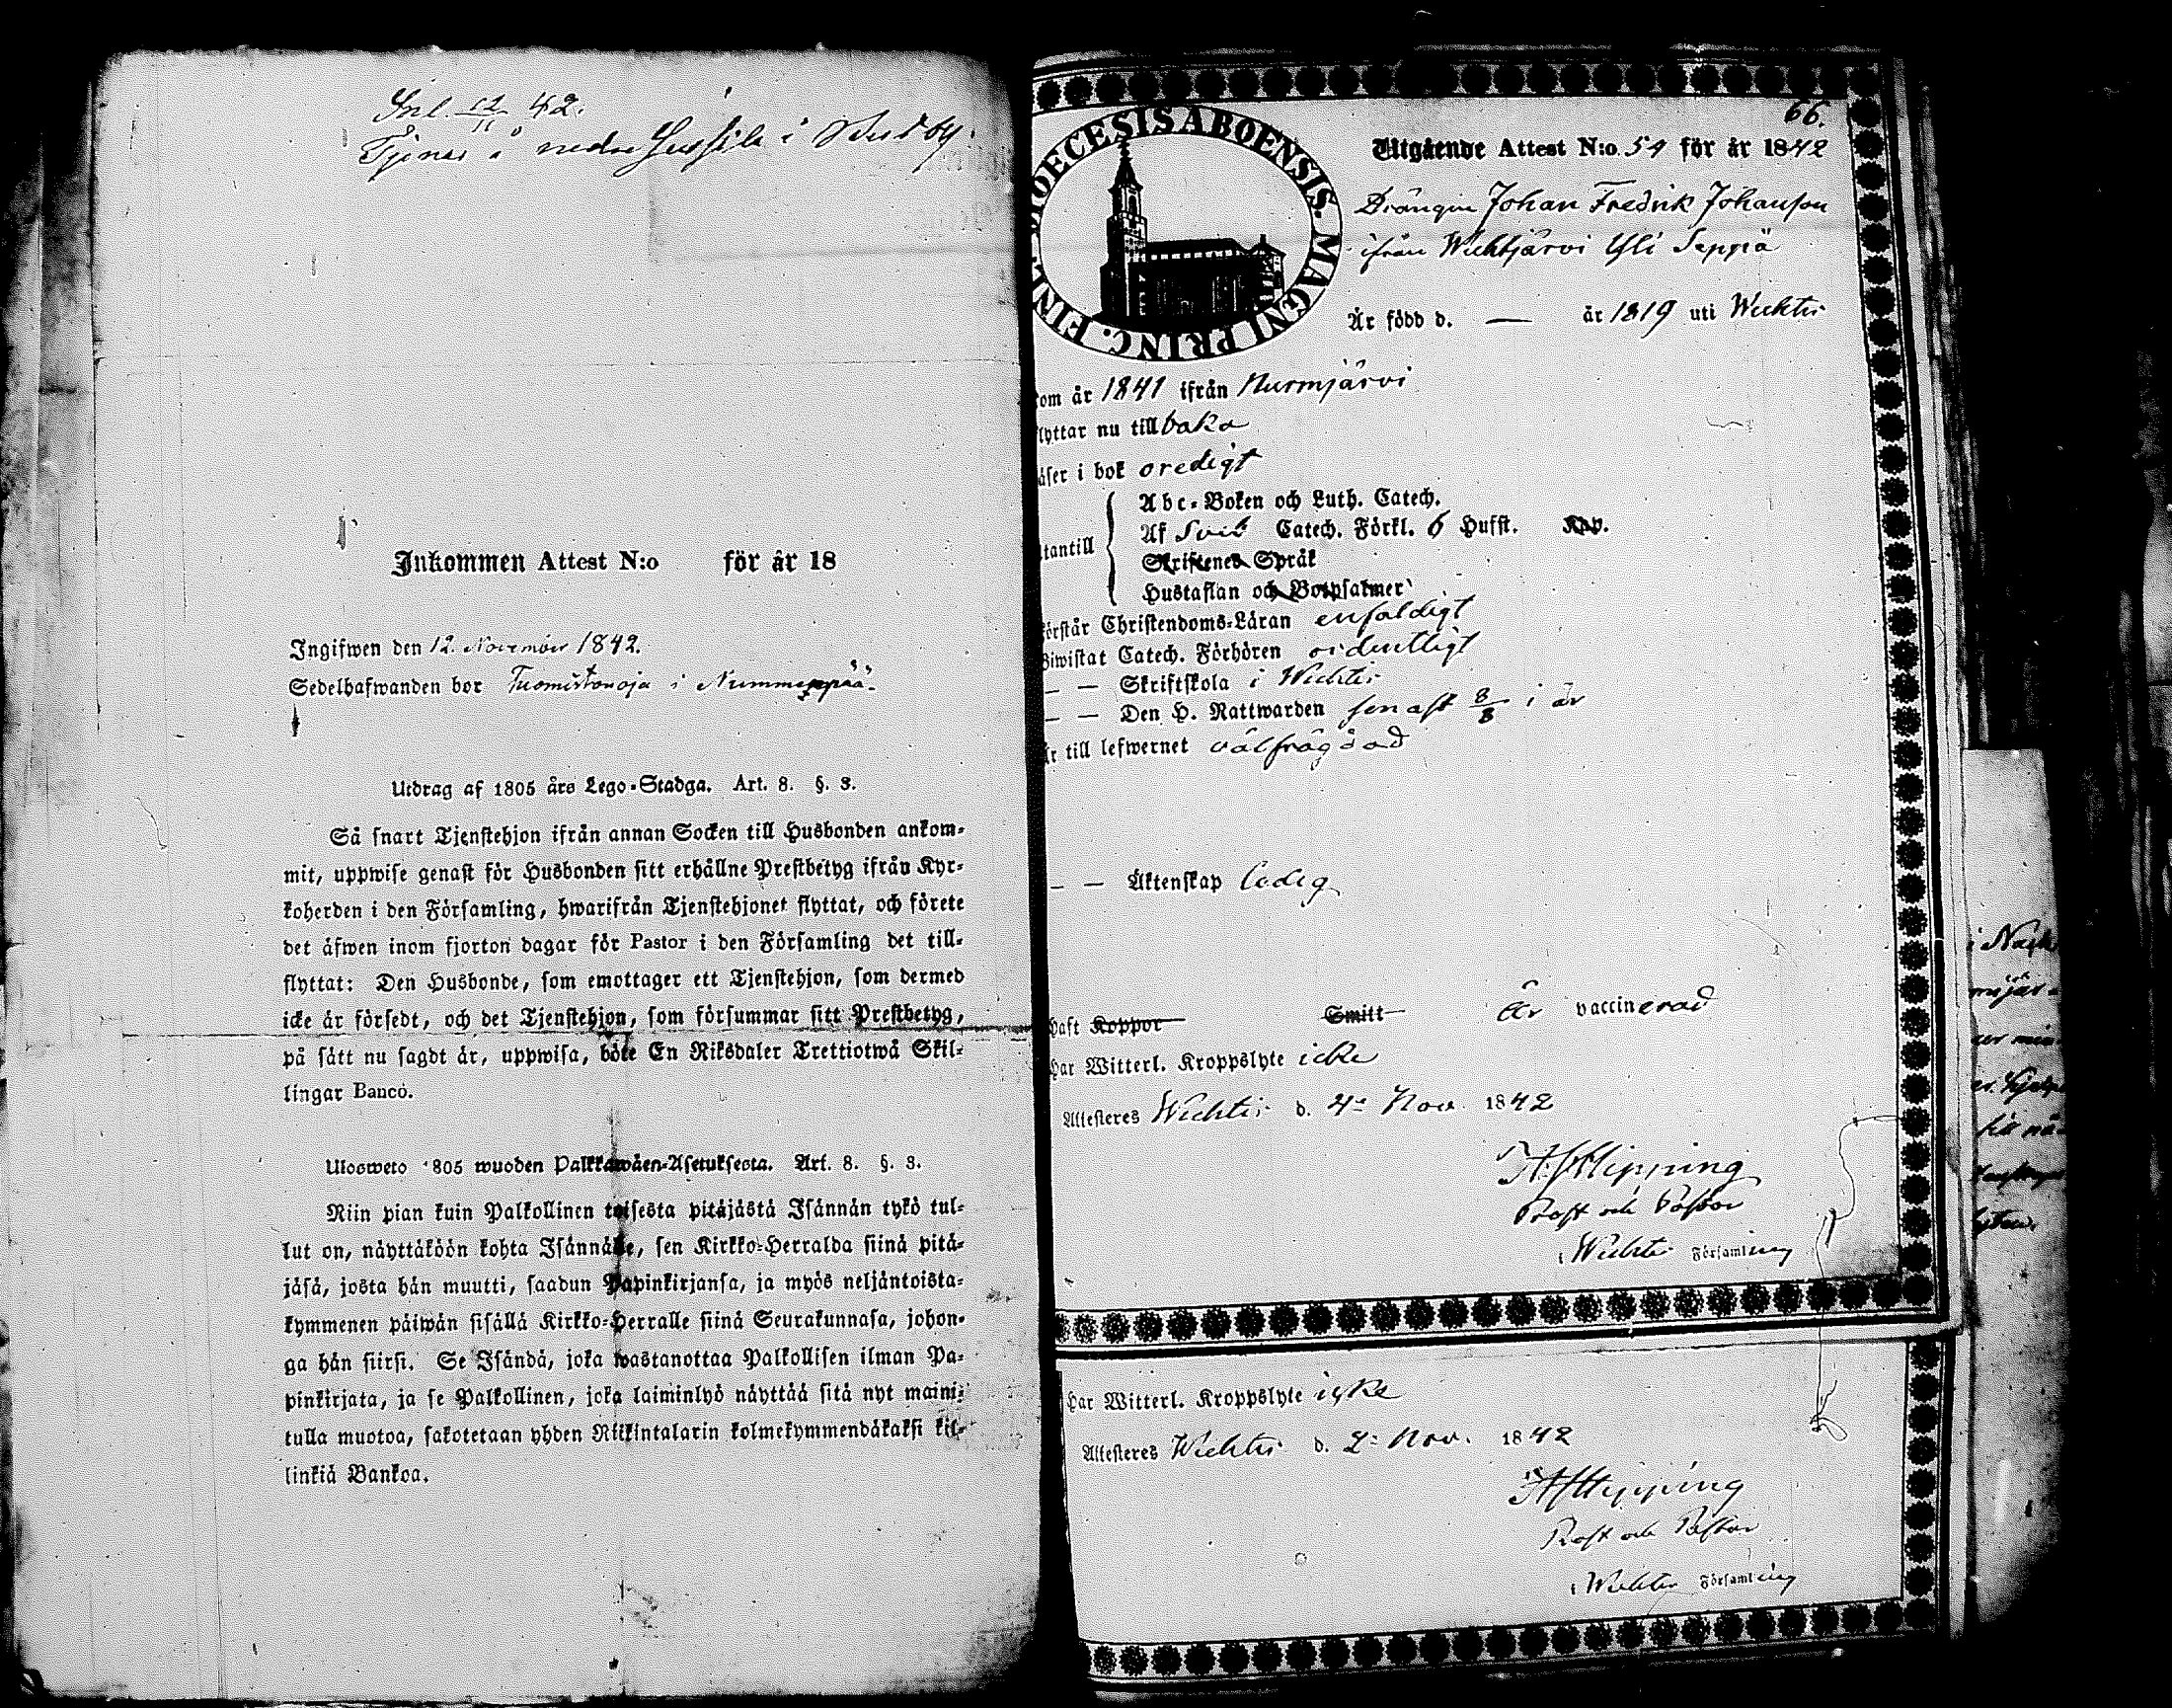 Inl. 12/11 42.
Tjenar å nedre Jussila i
Inkommen Attest N:o för år 18
Ingifwen den 12. November 1842.
Sedelhafwanden bor Tuomistonoja i Nummenpää.
Utdrag af 1805 års Lego-Stadga. Art. 8. §. 3.
Så snart Tjenstehjon ifrån annan Socken till Husbonden ankom-
mit, uppwise genast för Husbonden sitt erhållne Prestbetyg ifrån Kyr-
koherden i den Församling, hwarifrån Tjenstehjonet flyttat, och förete
det äfwen inom fjorton dagar för Pastor i den Församling det till-
flyttat: Den Husbonde, som emottager ett Tjenstehjon, som dermed
icke är försedt, och det Tjenstehjon, som försummar sitt Prestbetyg,
på sätt nu sagdt är, uppwisa, böte En Riksdaler Trettiotwå Skil-
lingar Banco.
Ulosweto 1805 wuoden Palkkawäen-Asetuksesta. Art. 8. §. 3.
Niin pian kuin Palkollinen toisesta pitäjästä Isännän tykö tul-
lut on, näyttäköön kohta Isännälle, sen Kirkko-Herralda siinä pitä-
jäsä, josta hän muutti, saadun Papinkirjansa, ja myös neljäntoista-
kymmenen päiwän sisällä Kirkko-Herralle siinä Seurakunnasa, johon-
ga hän siirsi. Se Isändä, joka wastanottaa Palkollisen ilman Pa-
pinkirjata, ja se Palkollinen, joka laiminlyö näyttää sitä nyt maini-
tulla muotoa, sakotetaan yhden Riikintalarin kolmekymmendäkaksi kil-
linkiä Bankoa.
66.
DIOECESIS ABOENSIS. MAGNI PRINC. FINL.
Utgående Attest N:o 54 för år 1842
Drängen Johan Fredrik Johanson
ifrån Wichtjärvi Yli Seppä
Är född d. — år 1819 uti Wichtis
kom år 1841 ifrån Nurmjärvi
flyttar nu tillbaka
läser i bok oredigt
utantill
Abc-Boken och Luth. Catech.
Af Svib Catech. Förkl. 6 Hufst. Kap.
Skriftenes Språk
Hustaflan och Botpsalmer
Förstår Christendoms-Läran enfaldigt
Biwistat Catech. Förhören ordentligt
— — Skriftskola i Wichtis
— — Den H. Nattwarden senast 8/8 i år
Är till lefwernet välfrägdad
— — Äktenskap ledig
haft Koppor Smitt är vaccinerad
har Witterl. Kroppslyte icke
Attesteres Wichtis d. 4de Nov. 1842
A. J. Hipping
Prost och Pastor
i Wichtis Församling
har Witterl. Kroppslyte icke
Attesteres Wichtis d. 2. Nov. 1842
A. J. Hipping
Prost och Pastor
i Wichtis Församling